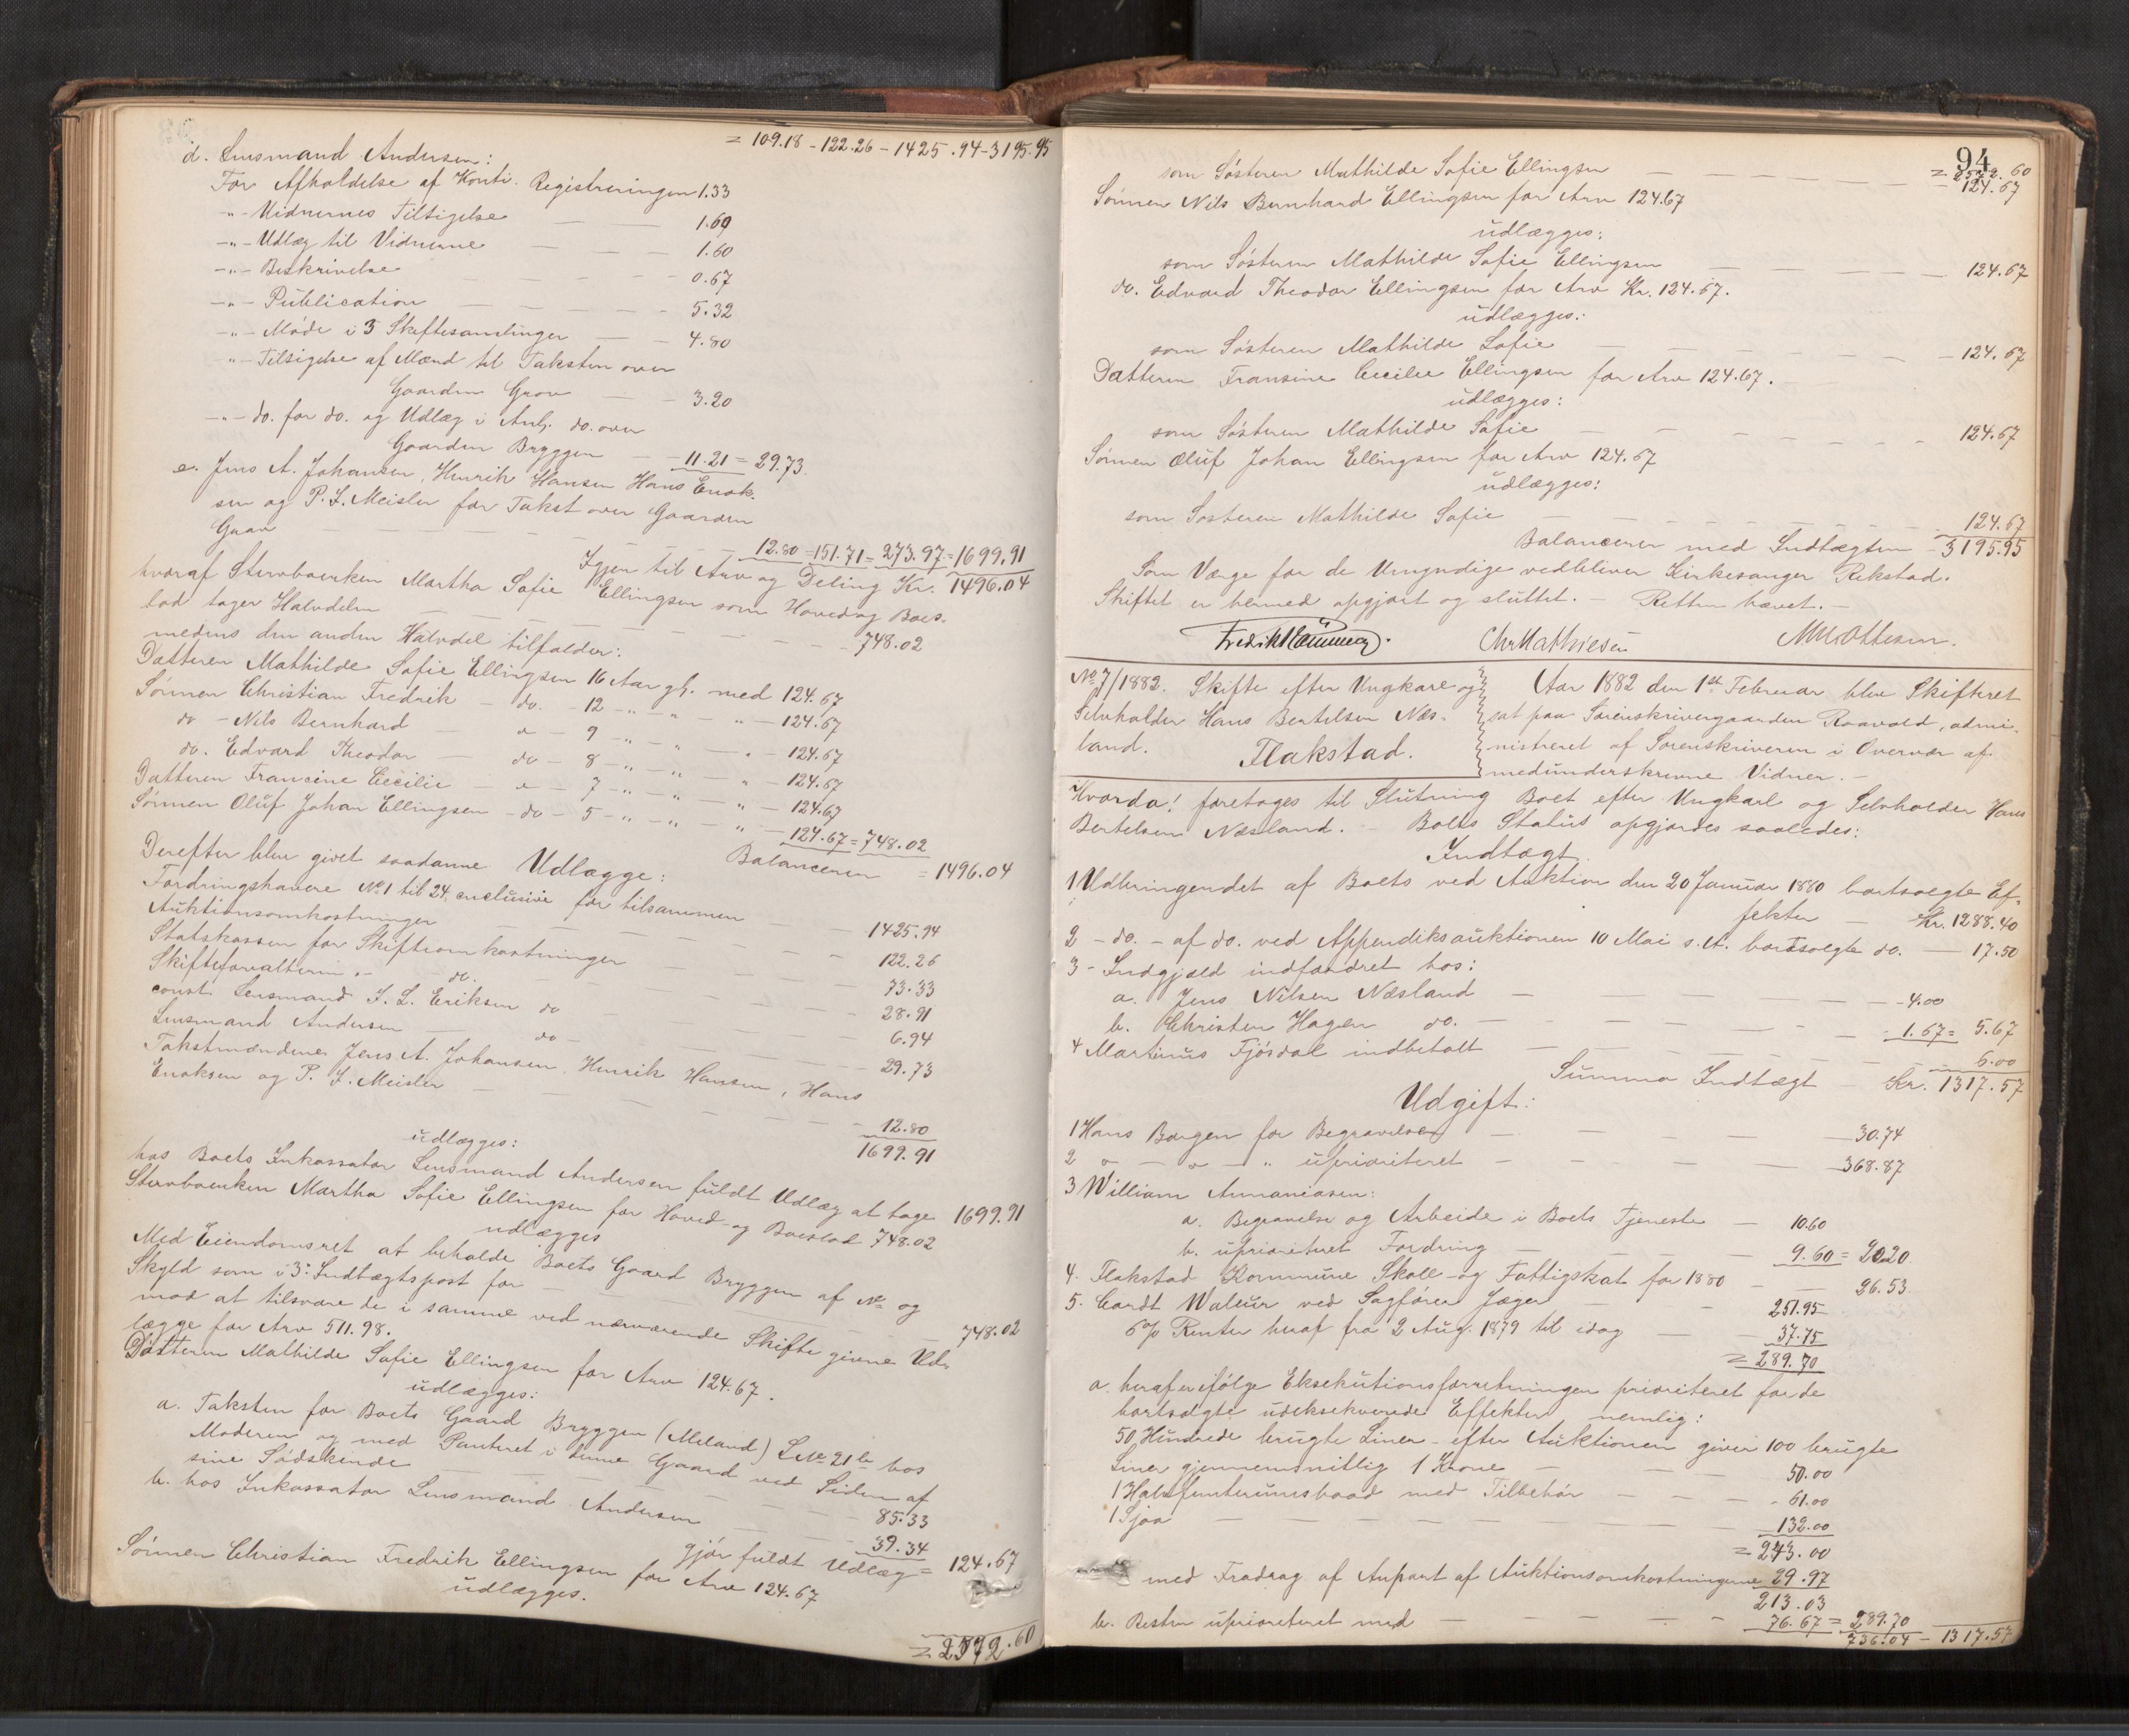 = 109.18 - 122.26 - 1425.94 - 3195.95
d. Lensmand Andersen:
For Afholdelse af Konti. Registreringen 1.33
-"- Vidnernes Tilsigelse — — 1.60
-"- Udlæg til Vidnerne — — 1.60
-"- Beskrivelse — — 0.67
-"- Publication — — 5.32
-"- Møde i 3 Skiftesamlinger — 4.80
-"- Tilsigelse af Mænd til Taksten over
Gaarden Grav — — 3.20
-"- do. for do. og Udlæg i Anl. do. over
Gaarden Bryggen — 11.21 = 29.73.
e. Jens A. Johansen, Henrik Hansen Hans Enok-
sen og P. J. Meisler for Takst over Gaarden
Grav — — 12.80 = 151.71 = 273.97 = 1699.91
Igjen til Arv og Deling Kr. 1496.04
hvoraf Stervboenken Martha Sofie Ellingsen som Hoved og Boes-
lod tager Halvdelen — — 748.02
medens den anden Halvdel tilfalder:
Datteren Mathilde Sofie Ellingsen 16 Aar gl. med 124.67
Sønnen Christian Fredrik — do. - 12 -"- " - " - 124.67
do - Nils Bernhard — " - 9 -"- " - " - 124.67
do. Edvard Theodor — do - 8 -"- " - " - 124.67
Datteren Francine Cecilie — " - 7 -"- " - " - 124.67
Sønnen Oluf Johan Ellingsen - do - 5 -"- " - " - 124.67 = 748.02
Balancerer = 1496.04
Derefter blev givet saadanne Udlægge:
Fordringshavere No 1 til 24 inclusive for tilsammen — 1425.94
Auktionsomkostninger — — 122.26
Statskassen for Skifteomkostninger — — 73.33
Skifteforvalteren " - do. — — 28.91
const. Lensmand J. L. Eriksen do — — 6.94
Lensmand Andersen — do — — 29.73
Takstmændene Jens A. Johansen, Henrik Hansen, Hans
Enoksen og P. J. Meisler — — 12.80
1699.91
udlægges:
hos Boets Inkassator Lensmand Andersen fuldt Udlæg at tage 1699.91
Stervboenken Martha Sofie Ellingsen for Hoved- og Boeslod 748.02
udlægges
Med Eiendomsret at beholde Boets Gaard Bryggen af No og
Skyld som i 3: Indtægtspost for — — 748.02
mod at tilsvare de i samme ved nærværende Skifte givne Ud-
lægge for Arv 511.98.
Datteren Mathilde Sofie Ellingsen for Arv 124.67.
udlægges:
a. Taksten for Boets Gaard Bryggen (Meland) LNo 21b hos
Moderen og med Panteret i denne Gaard ved Siden af
sine Sødskende — — 85.33
b. hos Inkassator Lensmand Andersen — — 39.34
gjør fuldt Udlæg = 124.67
Sønnen Christian Fredrik Ellingsen for Arv 124.67
udlægges.
= 2572.60
94
= 2572.60
som Søsteren Mathilde Sofie Ellingsen — — - 124.67
Sønnen Nils Bernhard Ellingsen for Arv 124.67
udlægges:
som Søsteren Mathilde Sofie Ellingsen — — 124.67
do. Edvard Theodor Ellingsen for Arv Kr. 124.67.
udlægges:
som Søsteren Mathilde Sofie — — - 124.67
Datteren Fransine Cecilie Ellingsen for Arv 124.67.
udlægges:
som Søsteren Mathilde Sofie — — 124.67
Sønnen Oluf Johan Ellingsen for Arv 124.67
udlægges:
som Søsteren Mathilde Sofie — — 124.67
Balancerer med Indtægten - 3195.95
Som Værge for de Umyndige vedbliver Kirkesanger Rekstad.
Skiftet er hermed opgjort og sluttet. — Retten hævet. —
Chr Mathiesen M Mattesen.
No 7/1882. Skifte efter Ungkarl og
Selvholder Hans Bertelsen Næs-
land. Flakstad.
Aar 1882 den 1ste Februar blev Skifteret
sat paa Sorenskrivergaarden Ramvold, admi-
nistreret af Sorenskriveren i Overvær af
medunderskrevne Vidner. —
Hvorda! foretoges til Slutning Boet efter Ungkarl og Selvholder Hans
Bertelsen Næsland. — Boets Status opgjordes saaledes:
Indtægt
1 Udbringendet af Boets ved Auktion den 20 Januar 1880 bortsolgte Ef-
fekter — Kr. 1288.40
2 - do. - af do. ved Appendiksauktionen 10 Mai s. A. bortsolgte do. — 17.50
3 - Indgjæld indfordret hos:
a. Jens Nilsen Næsland — — - 4.00
b. Christen Hagen do. — — - 1.67 = 5.67
4 Martinus Fjøsdal indbetalt — — 6.00
Summa Indtægt Kr. 1317.57
Udgift:
1 Hans Borgen for Begravelsen — — 30.74
2 " — " — " uprioriteret — — 368.87
3 William Annaniasen:
a. Begravelse og Arbeide i Boets Tjeneste — 10.60
b. uprioriteret Fordring — — 9.60 = 20.20
4. Flakstad Kommune Skole- og Fattigskat for 1880 — 26.53
5. Cardt Waleur ved Sagfører Jæger — - 251.95
6% Renter heraf fra 2 Aug. 1879 til idag — 37.75
= 289.70
a. heraf er ifølge Eksekutionsforretningen prioriteret for de
bortsolgte udeksekverede Effekter nemlig:
50 Hundrede brugte Liner - efter Auktionen giver 100 brugte
Liner gjennemsnitlig 1 Krone — — 50.00
1 Halvfemterumsbaad med Tilbehør — — - 61.00
1 Sjaa — — 132.00
= 243.00
med Fradrag af Anpart af Auktionsomkostningerne 29.97
213.03
b. Resten uprioriteret med — — 76.67 = 289.70
736.04 - 1317.57